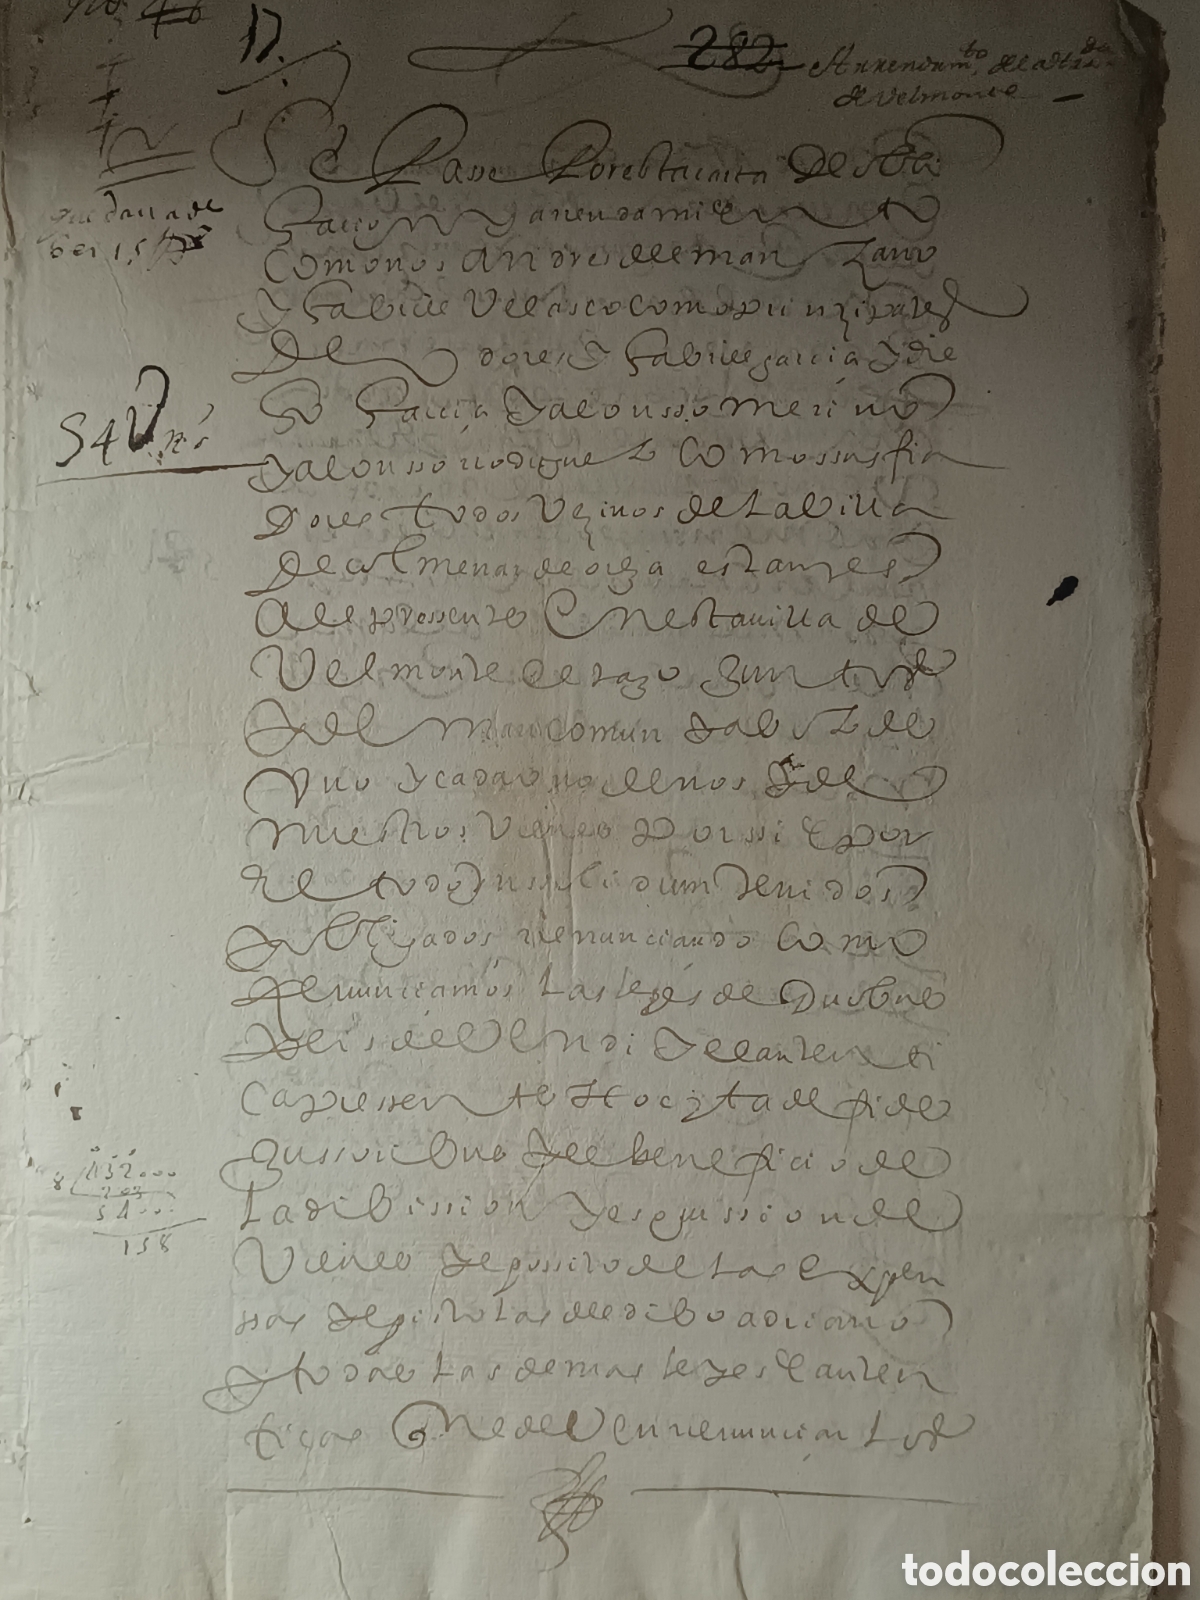 17.
282 Arrendamto. de
de Velmonte
Se Passe Por esta carta De obli
gacion y arrendamiento
Como nos Andres de el manzano
y Gabiel Velasco como prinzipales
De dores y Gabriel garcia y die
go Garcia y alonsso merino
y alonsso rrodriguez Como ssus fia
Dores todos Vezinos de La Villa
De colmenar de oreja estantes
Al pressente En esta villa de
Velmonte de tajo Juntos
y de Mancomun y a boz de
Uno y cada uno de nos y de
nuestros Vienes Por ssi E por
el todo ynssolidum tenidos
y obligados rrenunciando Como
rrenunciamos Las leyes de Duobus
rreis deVendi y el autenti
ca pressente Hocyta de fide
jussoribus y el beneficio de
La dibission y escurssion de
Vienes y depossito de Las Expen
ssas y epistolas del dibo adriano
y todas Las demas leyes E auten
ticas que deben rrenunciar Los
54V mrs
132000
158
todocoleccion